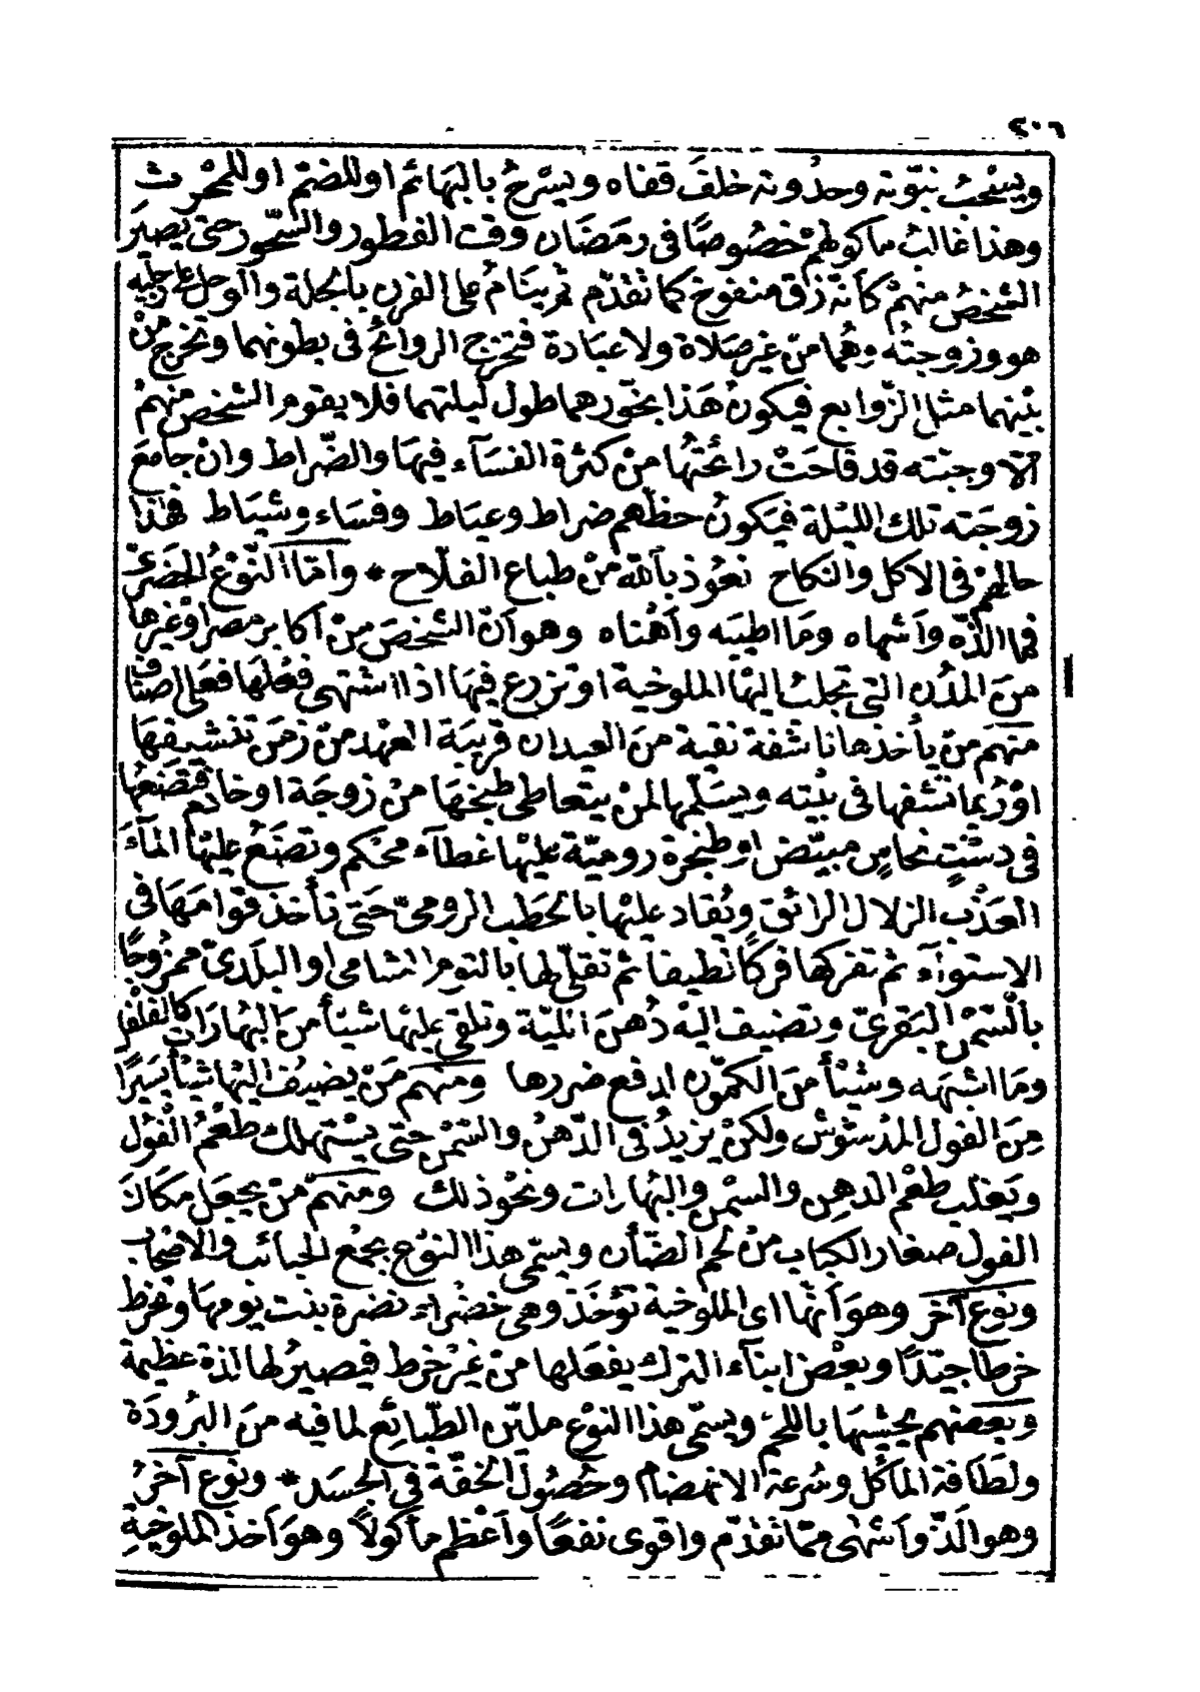 ٢٠٦
ويسْحبُ نبّوته وحذُوته خلفَ قفاه ويسْرحُ بالبهَائم او للضمّ او للحْرثِ
وهذا غالبُ ماكولهمْ خصُوصًا فى رمضَان وقت الفطور والسّحور حتى يصيَر
الشخصُ منهمْ كأنّه زق منفوخ كما تقدّم ثم ينَامُ على الفرن بالجلة والوحل على رجليه
هو وزوجتُه وهُما منْ غير صَلاة ولا عبَادة فتمتزج الروائحُ فى بطونهما وتخرج منْ
بيْنهما مثل الزّوابع فيكونُ هَذا بخّورهما طول ليلتهما فلا يقوم الشخص منهمْ
الّا وجنته قد فاحَتْ رائحتُها منْ كثرة الفسَآء فيهَا والضّراط وانْ جامَعَ
زوجَته تلك الليْلة فيَكونُ حظّهم ضراط وعيَاط وفسَاء وشيَاط فهَذا
حالهمْ فى الاكل والنكاح نعُوذ بالله منْ طباع الفلّاح * وأمّا النّوْعُ الحضَرىّ
فما الذّه وأشهاه ومَا اطيَبه وأهْناه وهو أنّ الشخصَ منْ أكابر مصر اوْ غيرهَا
منَ المدُن التى تجلبُ اليهْا الملوخية او تزرع فيهَا اذا اشتهى فعْلهَا فعَلى اصنَاف
منهَم منْ يأخذها ناشفة نقية منَ العيدان قريبَة العهْد منْ زمَن تنشيفهَا
اوْ رُبما نشفها فى بيْته ويسَلّمها لمنْ يتعَاطى طبْخهَا منْ زوجَة او خادم فتضَعُها
فى دسْتٍ نحاسٍ مبيّض او طنجرة روميّة عليْها غطآء محْكم وتضَعُ عليْها المآءَ
العذْب الزلال الرائقَ ويُقاد عليْها بالحَطب الرومىّ حَتى تأخذ قوَامهَا فى
الاستوآء ثم تفركها فركًا نظيفا ثم تقلّى لها بالثوم الشامى او البلَدىّ ممزُوجًا
بالْسّمْن البَقرىّ وتضيف اليْه دُهنَ الليّة وتلقى عليْها شيئًا منَ البهَارَات كالفلفل
ومَا اشبهَه وشيْئًا منَ الكمّون لدفع ضررها ومنهم مَنْ يضيفُ اليْها شيْئًا يسيرًا
منَ الفول المدْشوش ولكنْ يزيدُ فى الدّهنْ والسّمْن حتى يسْتهلك طعْمُ الفُول
ويَغلب طعْم الدهن والسمْن والبهَارات ونحْو ذلك ومنهَم منْ يجعَل مكَانَ
الفول صغار الكبَاب منْ لحم الضّأن ويسمّى هذا النوْع بجمْع الحبائب والاصْحاب
ونوع آخر وهوَ أنهّا اى الملوخية تؤخَذ وهى خضْراء نضرة بنت يومهَا وتخرط
خرطًا جيّدًا وبعْض ابنآء الترك يفعَلها منْ غيْر خرط فيصيرُ لها لذة عظيمة
وبَعضهم يحبشهَا باللحمْ ويسمّى هذا النوْع مليّن الطّبائِع لما فيه منَ البرُودَة
ولطَافة المأكَل وسُرعة الانهضام وحصُول الخفّة فى الجسَد * ونوع آخرُ
وهو الَذّ وأشهَى ممّا تقدّم واقوى نفعًا وأعْظم مأكولاً وهوَ أخذ الملوخيةِ